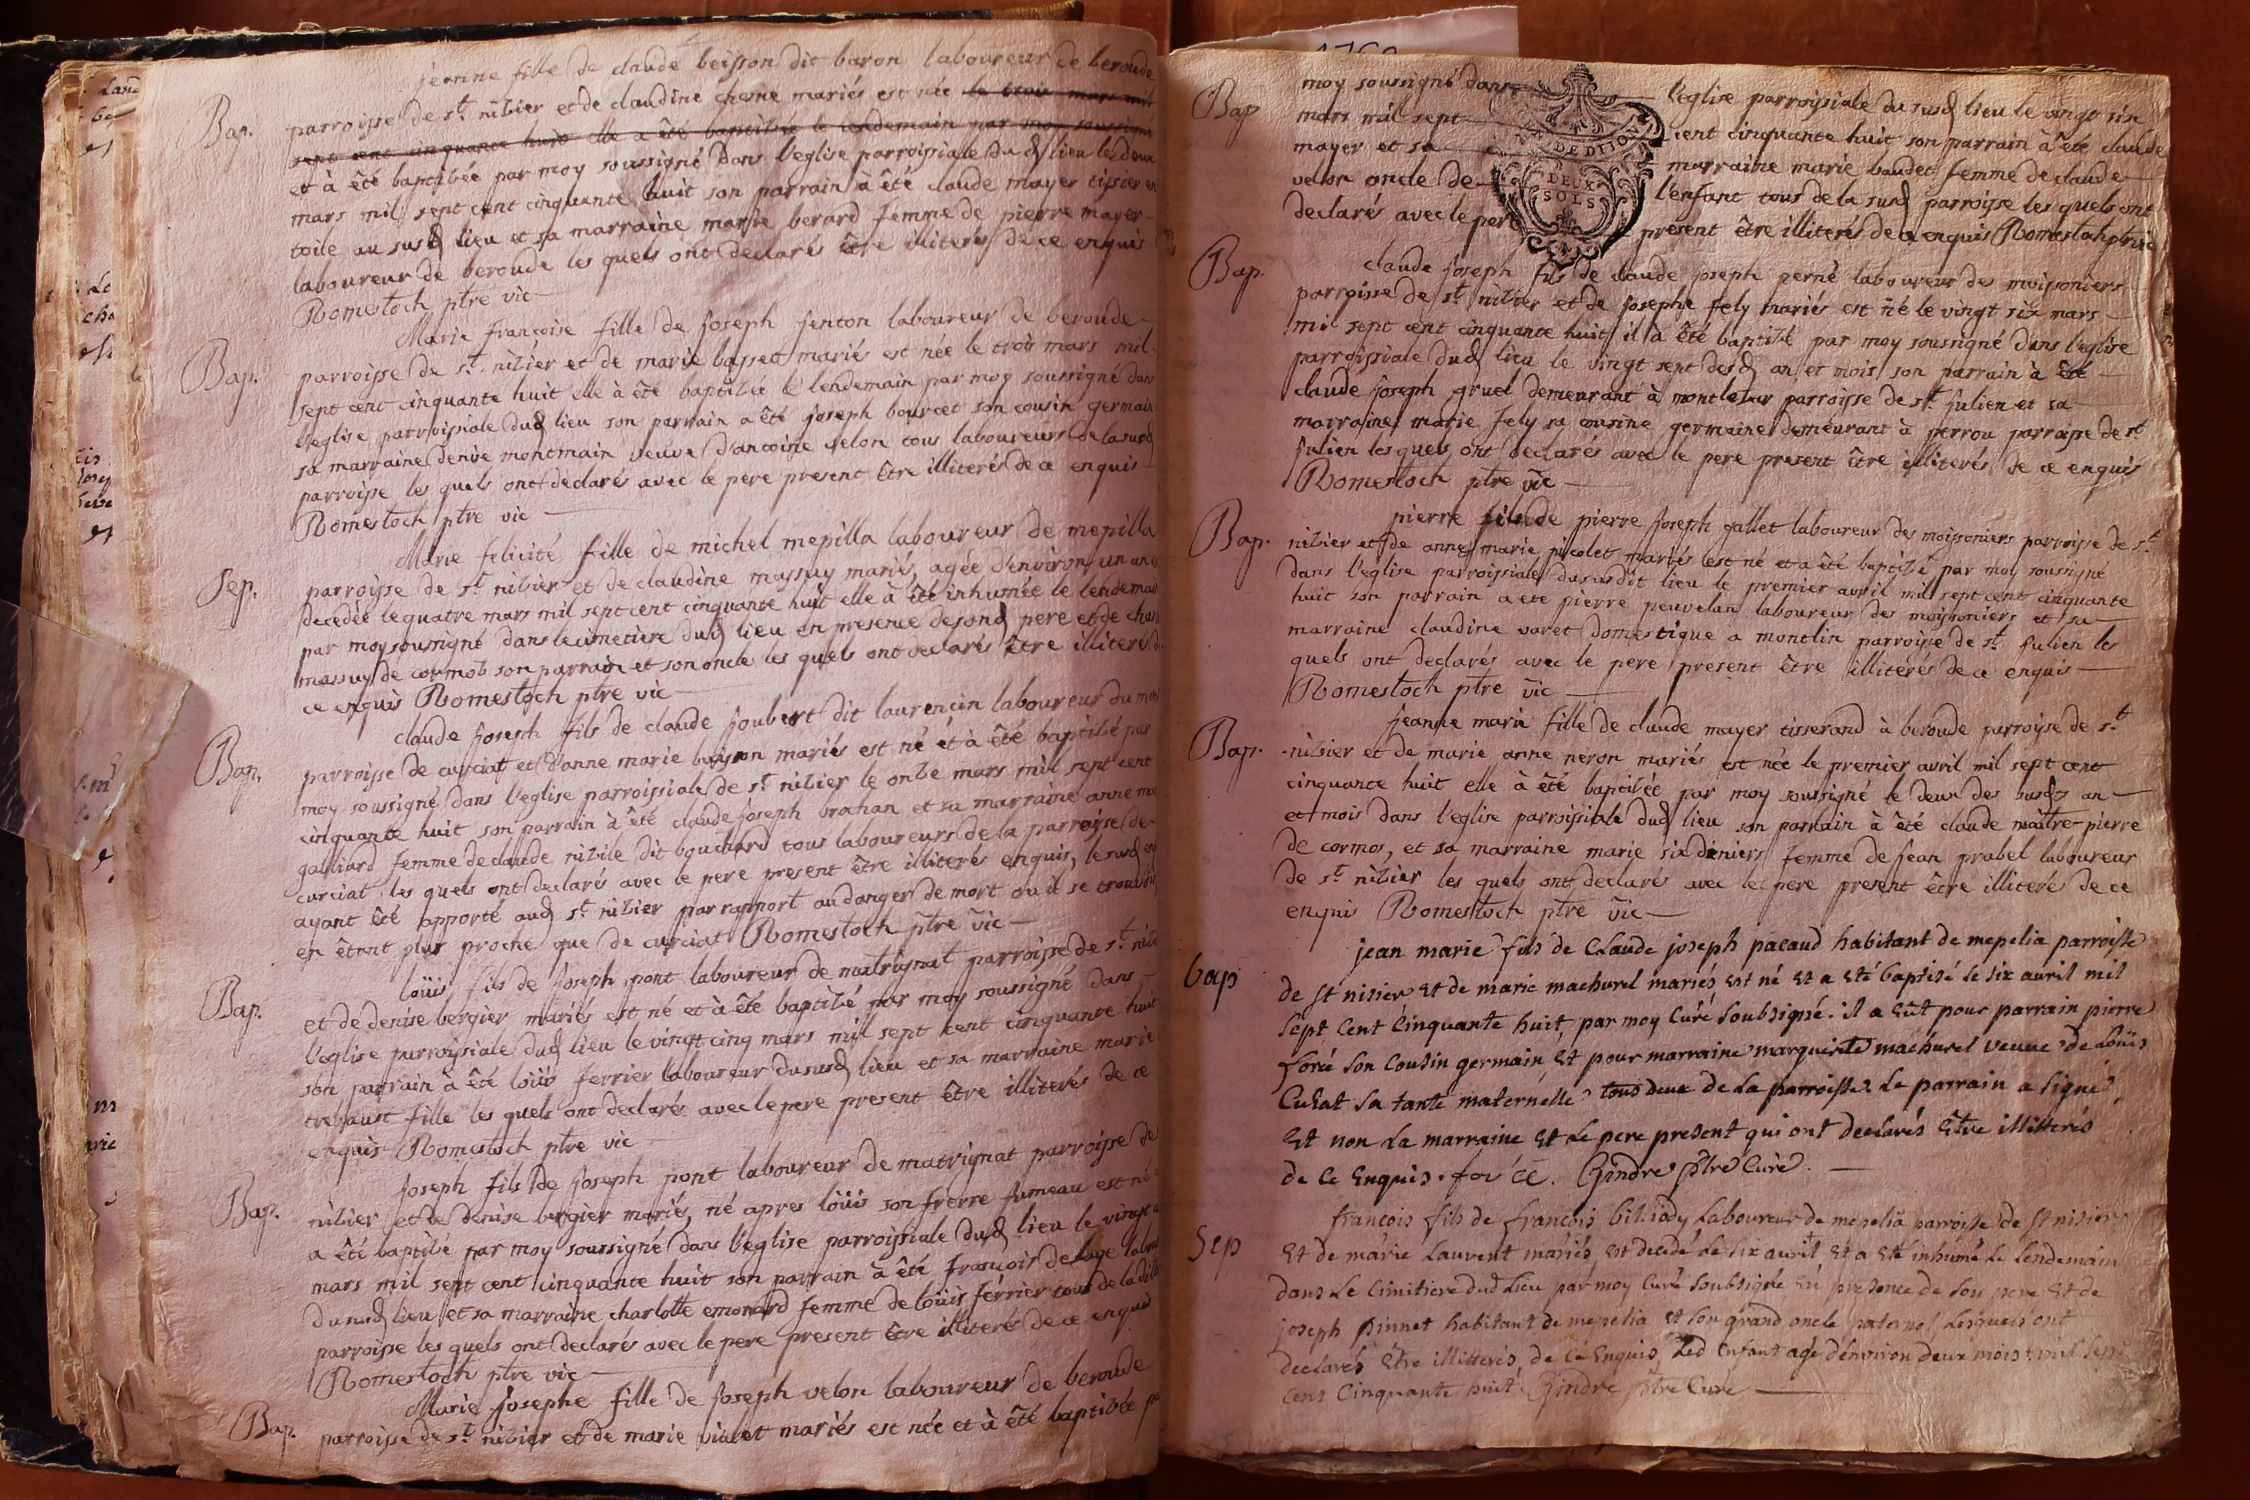 jeanne fille de claude beisson dit baron laboureur de beroude
Bap. parroisse de st. nizier et de claudine chesne mariés est née le trois mars mil
sept cent cinquante huit elle a été baptizée le lendemain par moy soussigné
et à été baptizée par moy soussigné dans l'eglise parroissiale dud lieu le deux
mars mil sept cent cinquante huit son parrain à été claude mayer tissier en
toile au susd lieu et sa marraine marie berard femme de pierre mayer
laboureur de beroude les quels ont declarés être illiterés de ce enquis
Romestoch ptre vic
Marie françoise fille de joseph fenton laboureur de beroude
Bap. parroisse de st. nizier et de marie basset mariés est née le trois mars mil
sept cent cinquante huit elle à été baptizée le lendemain par moy soussigné dans
l'eglise parroissiale dud lieu son parrain a été joseph bourcet son cousin germain
sa marraine denise montmain veuve d'antoine velon tous laboureurs de la susd
parroisse les quels ont declarés avec le pere present être illiterés de ce enquis
Romestoch ptre vic
Marie felicité fille de michel mepilla laboureur de mepilla
Sep. parroisse de st. nizier et de claudine massuy mariés, agée d'environ un an
decedée le quatre mars mil sept cent cinquante huit elle à été inhumée le lendemain
par moy soussigné dans le cimetiere dud lieu en presence de sond pere et de
massuy de cormob son parrain et son oncle les quels ont declarés être illiterés
ce enquis Romestoch ptre vic
claude joseph fils de claude joubert dit laurencin laboureur du
Bap. parroisse de curciat et d'anne marie buisson mariés est né et à été baptizé par
moy soussigné dans l'eglise parroissiale de st. nizier le onze mars mil sept cent
cinquante huit son parrain à été claude joseph brachan et sa marraine anne
galliard femme de claude nizile dit bouchard tous laboureurs de la parroisse de
curciat, les quels ont declarés avec le pere present être illiterés enquis, le susd
ayant été apporté aud st. nizier par rapport au danger de mort ou il se trouvoit
en étant plus proche que de curciat Romestoch ptre vic
loüis fils de joseph pont laboureur de matrignat parroisse de st. nizier
Bap. et de denise bergier mariés est né et à été baptizé par moy soussigné dans
l'eglise parroissiale dud lieu le vingt cinq mars mil sept cent cinquante huit
son parrain à été loüis ferrier laboureur du susd lieu et sa marraine marie
trebaust fille les quels ont declarés avec le pere present être illiterés de ce
enquis Romestoch ptre vic
joseph fils de joseph pont laboureur de matrignat parroisse de
Bap. nizier et de denise bergier mariés, né apres loüis son frerre jumeau est né
a été baptizé par moy soussigné dans l'eglise parroissiale dud lieu le vingt
mars mil sept cent cinquante huit son parrain à été françois deluye
du susd lieu et sa marraine charlotte emonard femme de loüis ferrier tous de la
parroisse les quels ont declarés avec le pere present être illiterés de ce enquis
Romestoch ptre vic
Marie josephe fille de joseph velon laboureur de beroude
Bap. parroisse de st. nizier et de marie vialet mariés est née et à été baptizée
Bap moy soussigné dans l'eglise parroissiale du susd lieu le vingt six
mars mil sept cent cinquante huit son parrain à été claude
mayer et sa marraine marie baudet femme de claude
velon oncle de l'enfant tous de la susd parroisse les quels ont
declarés avec le pere present être illiterés de ce enquis Romestoch ptre vic
DE DIJON
DEUX
SOLS
claude joseph fils de claude joseph perné laboureur des moissoniers
Bap. parroisse de st. nizier et de josephe fely mariés est né le vingt six mars
mil sept cent cinquante huit il à été baptizé par moy soussigné dans l'eglise
parroissiale dud lieu le vingt sept desd an et mois son parrain à été
claude joseph gruel demeurant à montleveur parroisse de st. julien et sa
marraine marie fely sa cousine germaine demeurant à perrou parroisse de st.
julien les quels ont declarés avec le pere present être illiterés de ce enquis
Romestoch ptre vic
pierre fils de pierre joseph gallet laboureur des moissoniers parroisse de st.
Bap. nizier et de anne marie picolet mariés est né et a été baptizé par moy soussigné
dans l'eglise parroissiale du susdit lieu le premier avril mil sept cent cinquante
huit son parrain a été pierre peuvelan laboureur des moissoniers et sa
marraine claudine varet domestique a montlin parroisse de st. julien les
quels ont declarés avec le pere present être illiterés de ce enquis
Romestoch ptre vic
jeanne marie fille de claude mayer tisserand à beroude parroisse de st.
Bap. nizier et de marie anne neron mariés est née le premier avril mil sept cent
cinquante huit elle à été baptizée par moy soussigné le deux des susdts an
et mois dans l'eglise parroissiale dud lieu son parrain à été claude maître-pierre
de cormos, et sa marraine marie six deniers femme de jean prabel laboureur
de st. nizier les quels ont declarés avec le pere present être illiterés de ce
enquis Romestoch ptre vic
jean marie fils de Claude joseph pacaud habitant de mepelia parroisse
bap de st nisier et de marie machurel mariés est né et a été baptisé le six avril mil
sept cent cinquante huit, par moy curé soubsigné. il a eüt pour parrain pierre
foré son cousin germain, et pour marraine marguerite machurel veuve de loüis
Cuzat sa tante maternelle tous deux de la parroisse. le parrain a signé,
et non la marraine et le pere present qui ont declarés être illitterés
de ce enquis. Gindre ptre curé.
françois fils de françois biziady laboureur de mepelia parroisse de st nisier
Sep et de marie laurent mariés est decedé le six avril et a été inhumé le lendemain
dans le cimitiere dud lieu par moy curé soubsigné en presence de son pere et de
joseph pinnet habitant de mepelia et son grand oncle paternel lesquels ont
declarés être illitterés de ce enquis, led enfant agé d'environ deux mois mil sept
cent cinquante huit. Gindre ptre curé